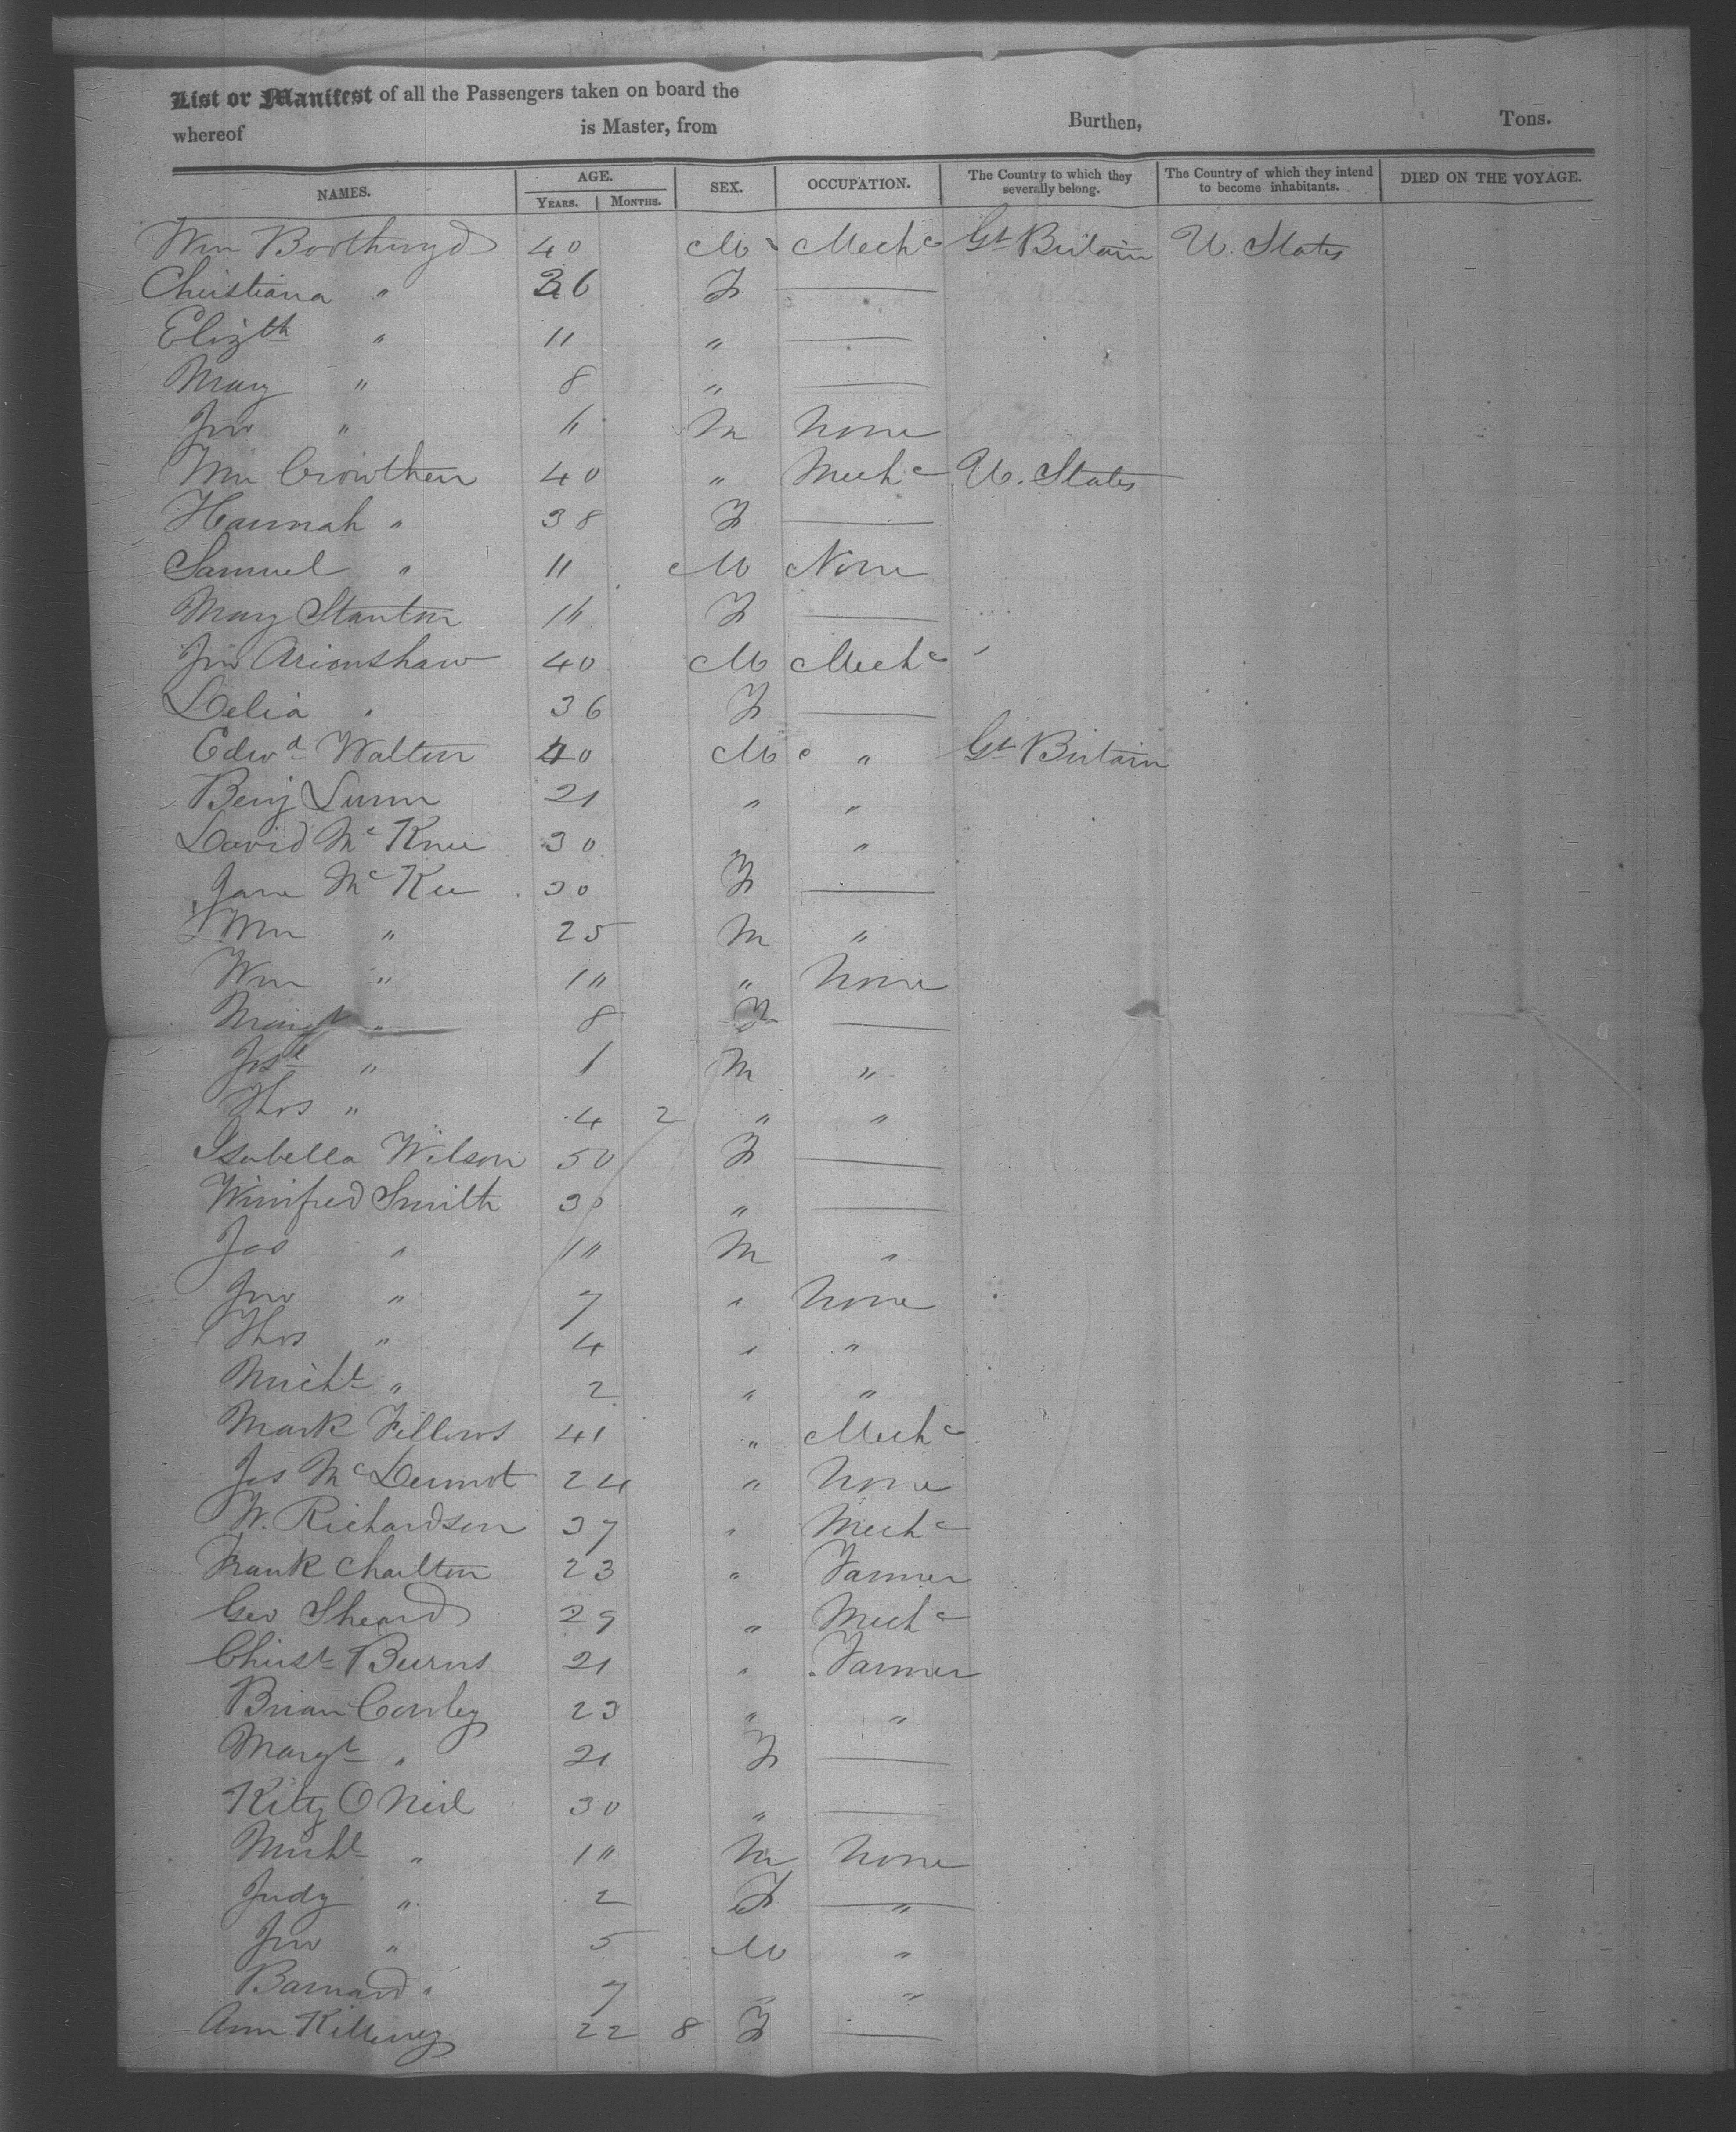 List or Manifest of all the Passengers taken on board the
whereof is Master, from Burthen, Tons.
NAMES. AGE. YEARS. MONTHS. SEX. OCCUPATION. The Country to which they severally belong. The Country of which they intend to become inhabitants. DIED ON THE VOYAGE.
Wm Boothwyd 40 M Mechc Gt Britain U. States
Christiana " 36 F —
Elizth " 11 " —
Mary " 8 " —
Jno " 6 M None
Wm Crowther 40 " Mechc U. States
Hannah " 38 F —
Samuel " 11 M None
Mary Stanton 16 F —
Jno 40 M Mechc
Delia " 36 F —
Edwd Walton 40 M " Gt Britain
Benj Lunn 21 " "
David Mc Knee 30 " "
Jane Mc Kee 30 F —
Wm " 25 M "
Wm " 1" " None
Margt " 8 F —
" 1 M "
Thos " 4 2 " "
Isabella Wilson 50 F —
Winifred Smith 30 " —
Jas " 1" M "
Jno " 7 " None
Thos " 4 " "
Michl " 2 " "
Mark Fellows 41 " Mechc
Jas McDermot 24 " None
W. Richardson 37 " Mechc
Frank Charlton 23 " Farmer
Geo Sheard 29 " Mechc
Christ Burns 21 " Farmer
Brian Conley 23 " "
Margt " 21 F —
Kitty O Neil 30 " —
Michl " 1" M None
Judy " 2 F — "
Jno " 5 M "
Barnard " 7 " "
Ann 22 8 F —